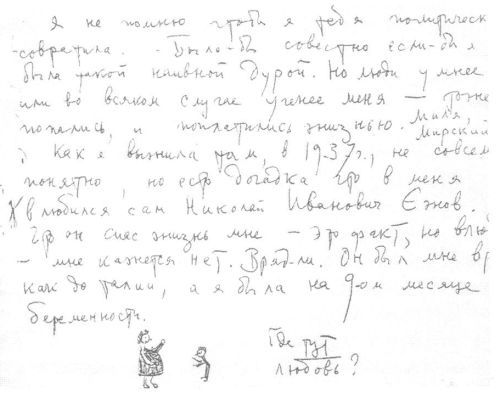 Я не помню чтобы я тебя политически
-совратила. - Было-бы совестно если-бы я
была такой наивной дурой. Но люди умнее
или во всяком случае ученее меня — тоже
попались, и поплатились жизнью. Миля, Мирский
Как я выжила там, в 1937г., не совсем
понятно, но есть догадка что в меня
влюбился сам Николай Иванович Ежов.
Что он спас жизнь мне - это факт, но влю
- мне кажется нет. Вряд-ли. Он был мне
как до талии, а я была на 9-ом месяце
беременности.
Где тут
любовь?